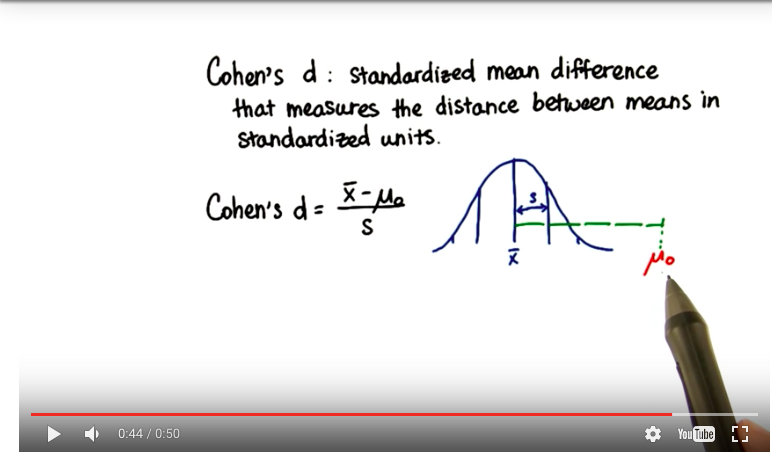 Cohen's d : standardized mean difference
that measures the distance between means in
standardized units.
Cohen's d = x̄ - μ₀ / s
s
x̄
μ₀
0:44 / 0:50
YouTube